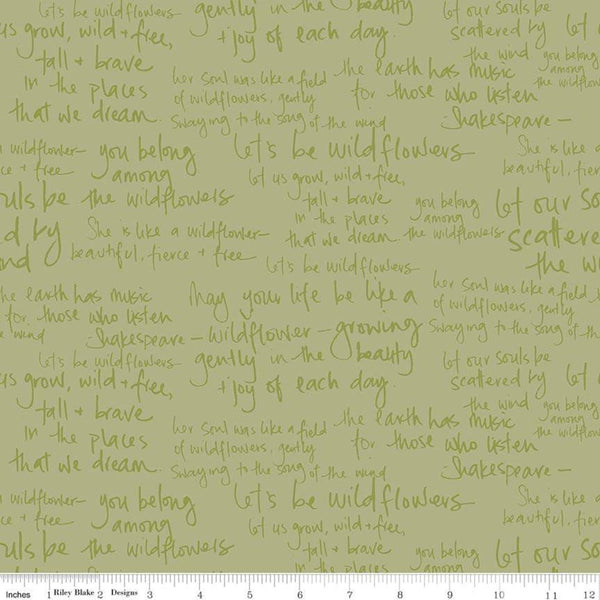 let's be wildflowers
us grow, wild + free,
tall + brave
in the places
that we dream.
gently in the beauty
+ joy of each day.
let our souls be
scattered by
the wind
let o
you belong
among
the wildflow
her soul was like a field
of wildflowers, gently
swaying to the song of the wind
the earth has music
for those who listen
Shakespeare —
a wildflower
rce + free
you belong
among
the wildflowers
let's be wildflowers
let us grow, wild + free,
tall + brave
in the places
that we dream.
you belong
among
the wildflowers
She is like a
beautiful, fierce
let our sou
scattered
the w
uls be
d by
nd
She is like a wildflower
beautiful, fierce + free
let's be wildflowers
the earth has music
for those who listen
Shakespeare —
e wind
May your life be like a
wildflower — growing
gently in the beauty
+ joy of each day.
her soul was like a field
of wildflowers, gently
swaying to the song of the
let's be wildflowers
us grow, wild + free,
tall + brave
in the places
that we dream.
let our souls be
scattered by
the wind
let o
you belong
among
the wildflow
her soul was like a field
of wildflowers, gently
swaying to the song of the wind
the earth has music
for those who listen
Shakespeare —
a wildflower
rce + free
you belong
among
the wildflowers
let's be wildflowers
let us grow, wild + free,
tall + brave
in the places
you belong
among
She is like a
beautiful, fierce
let our sou
uls be
Inches 1 Riley Blake 2 Designs 3 4 5 6 7 8 9 10 11 12